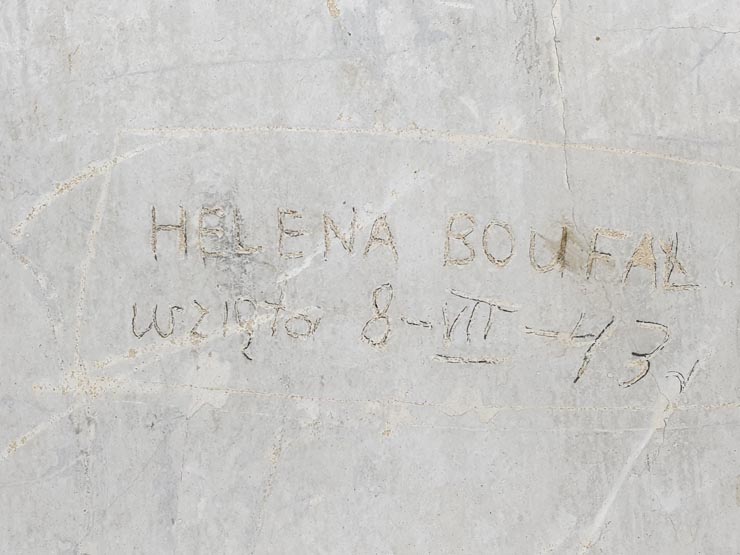 HELENA BOUFAŁ
wzięto 8-VII-43r